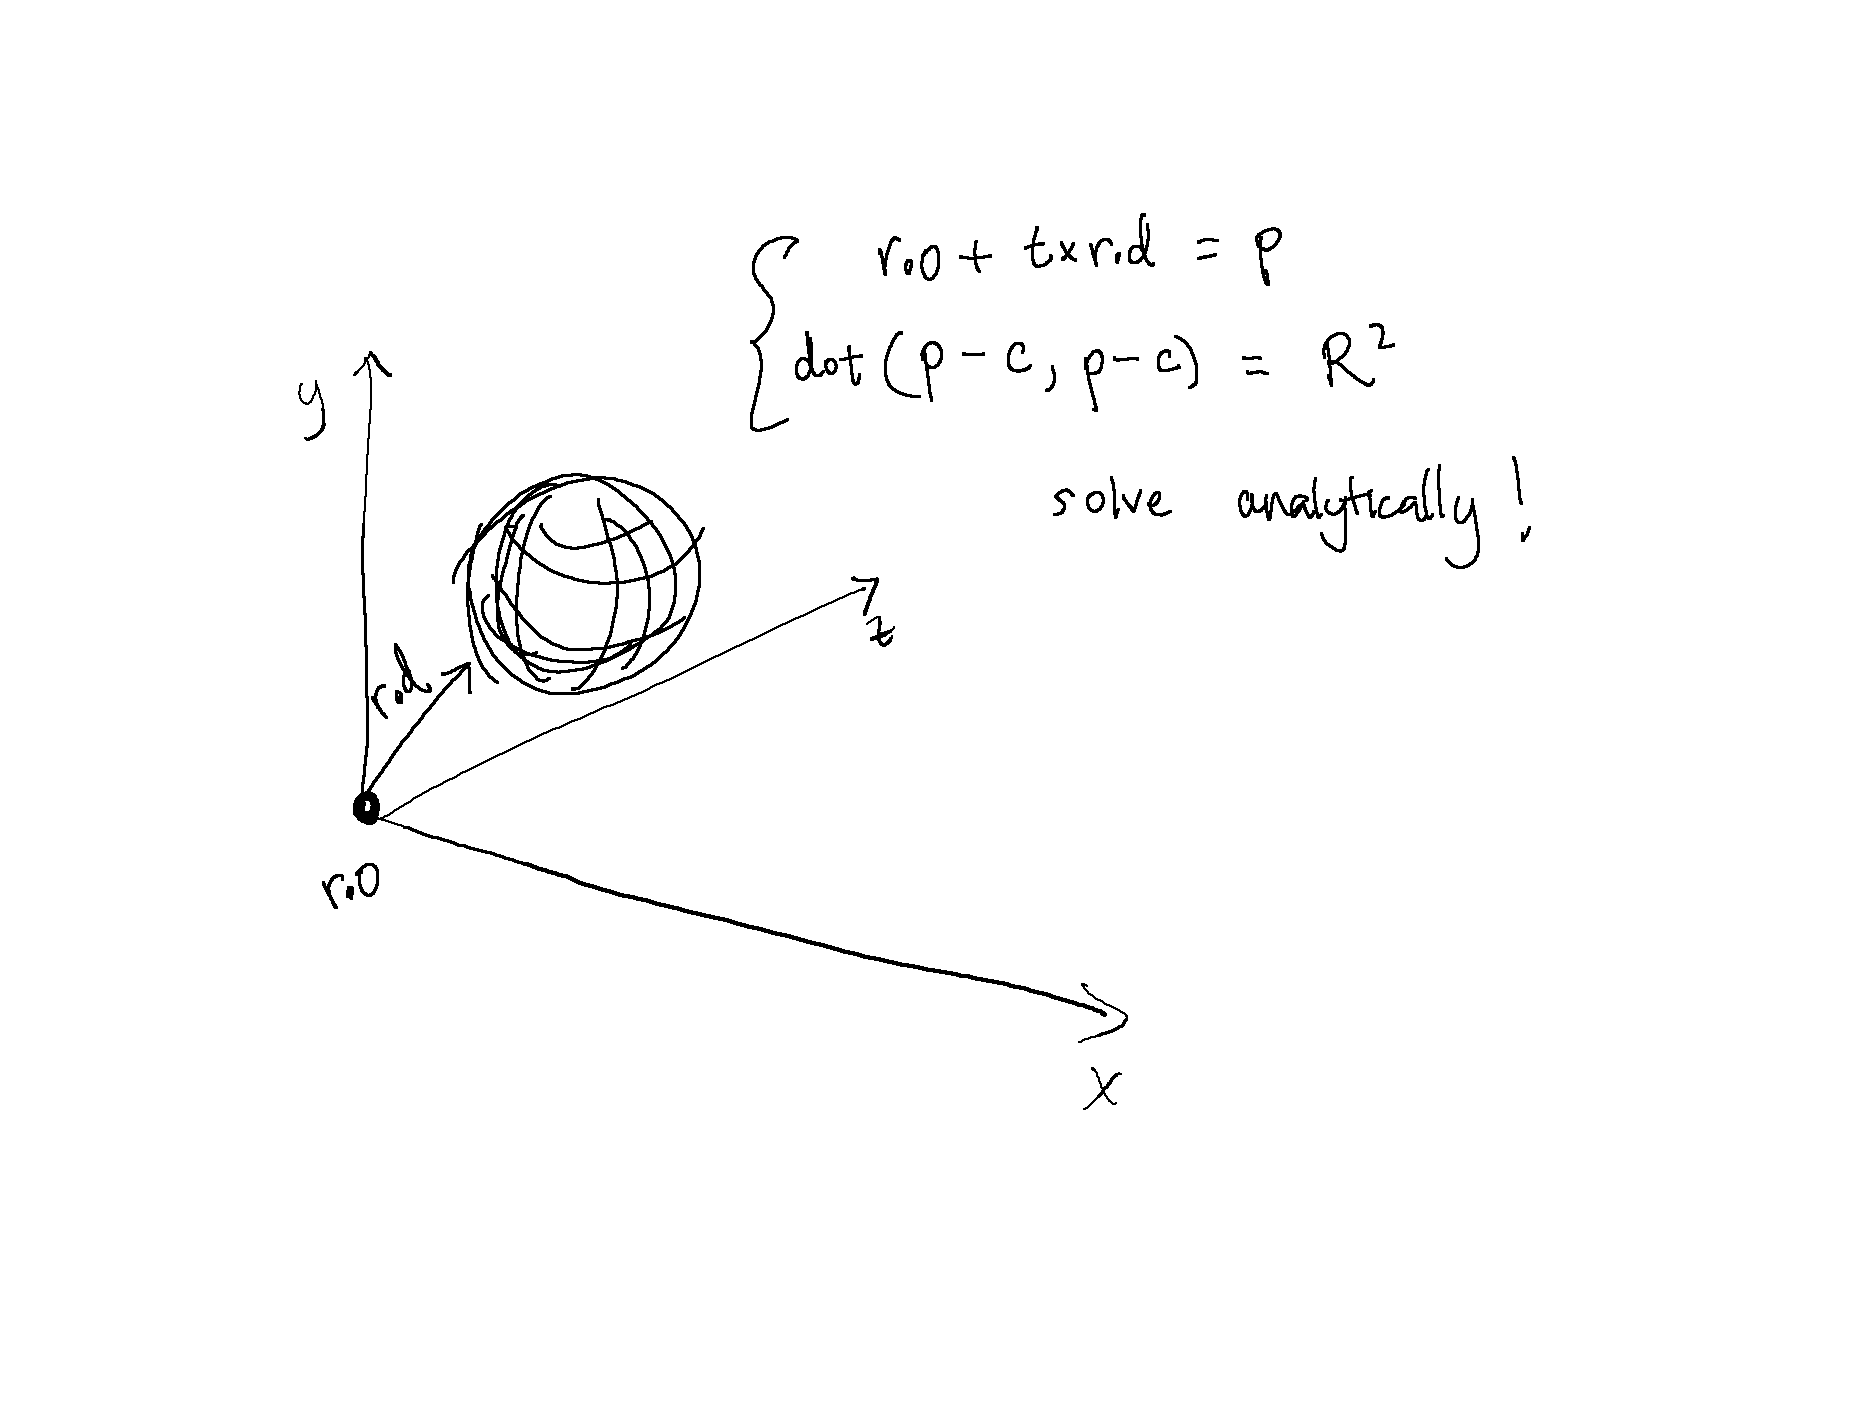 r.o + t x r.d = p
dot (p - c, p - c) = R²
solve analytically!
y
z
r.d
r.o
x